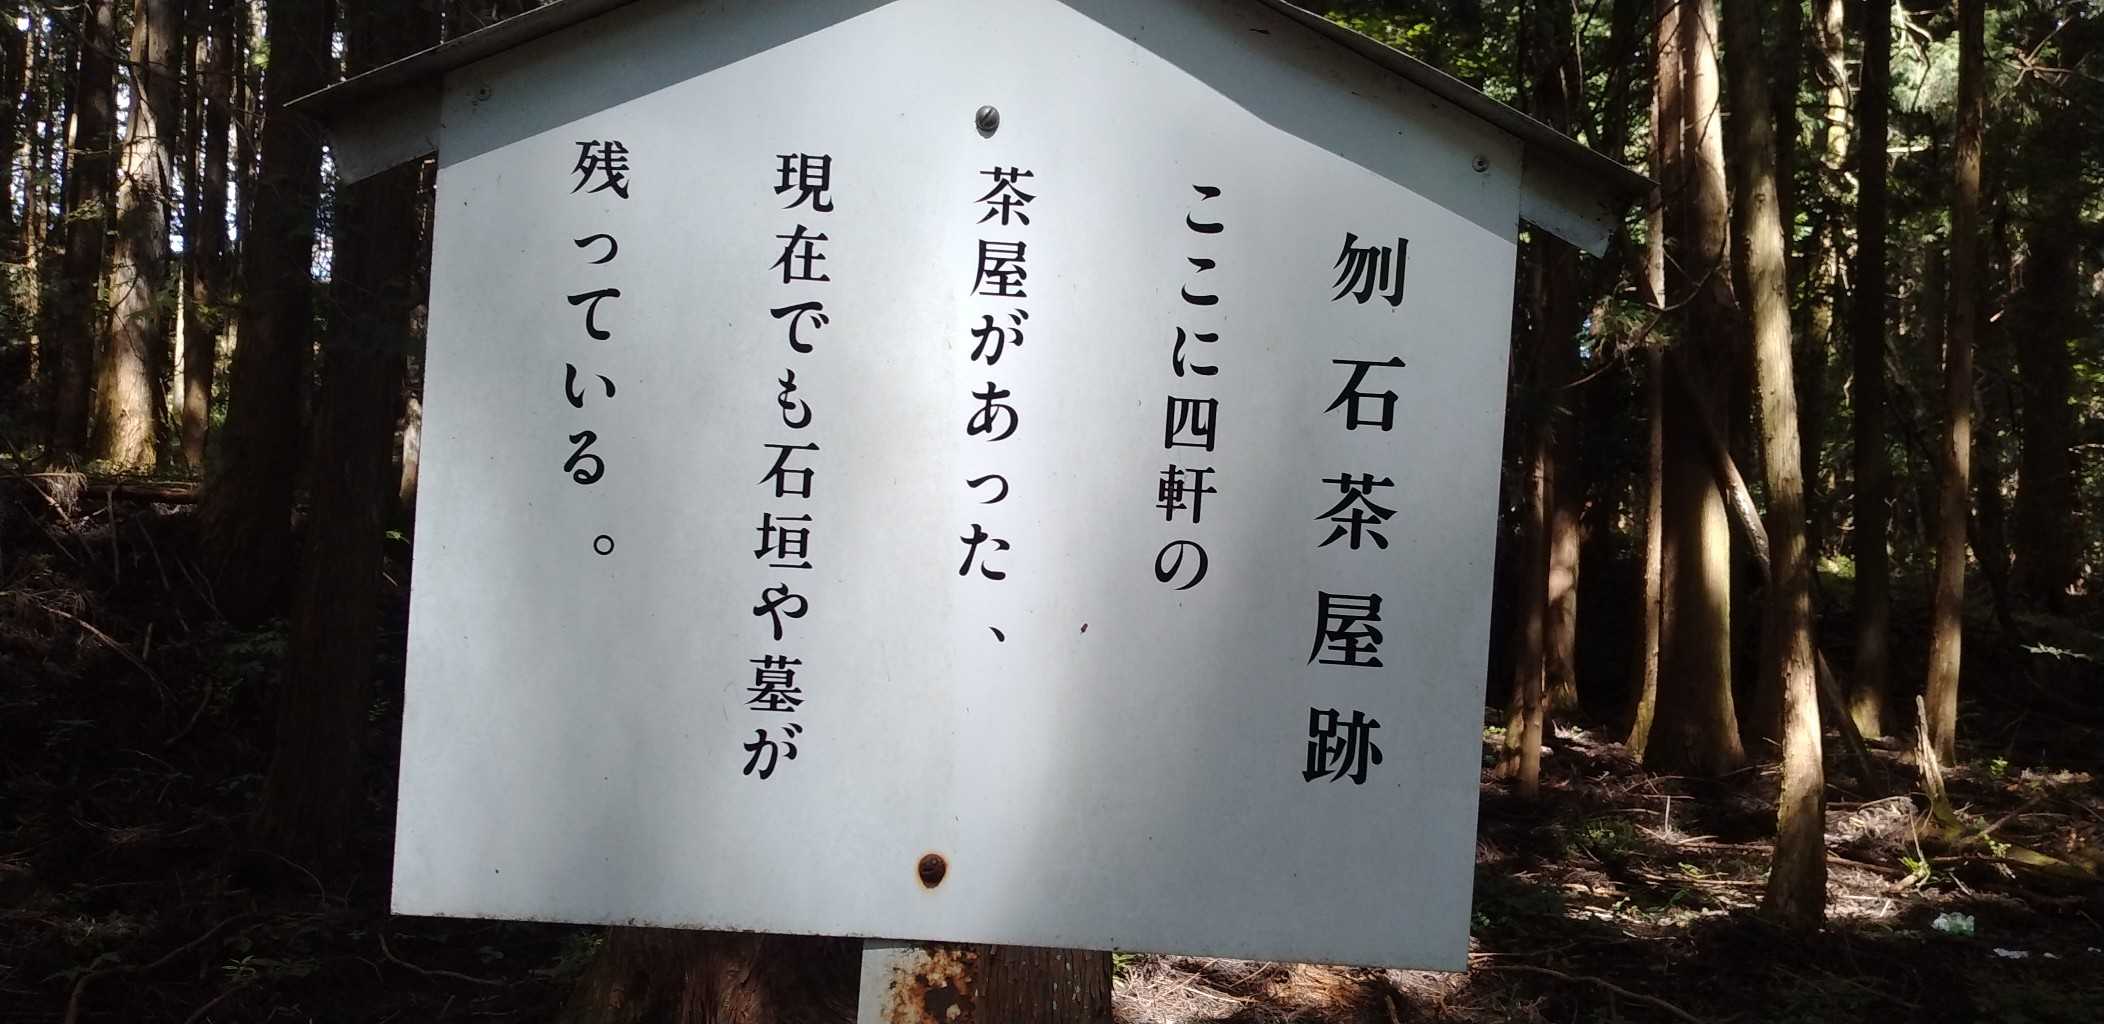 刎石茶屋跡
ここに四軒の
茶屋があった、
現在でも石垣や墓が
残っている。